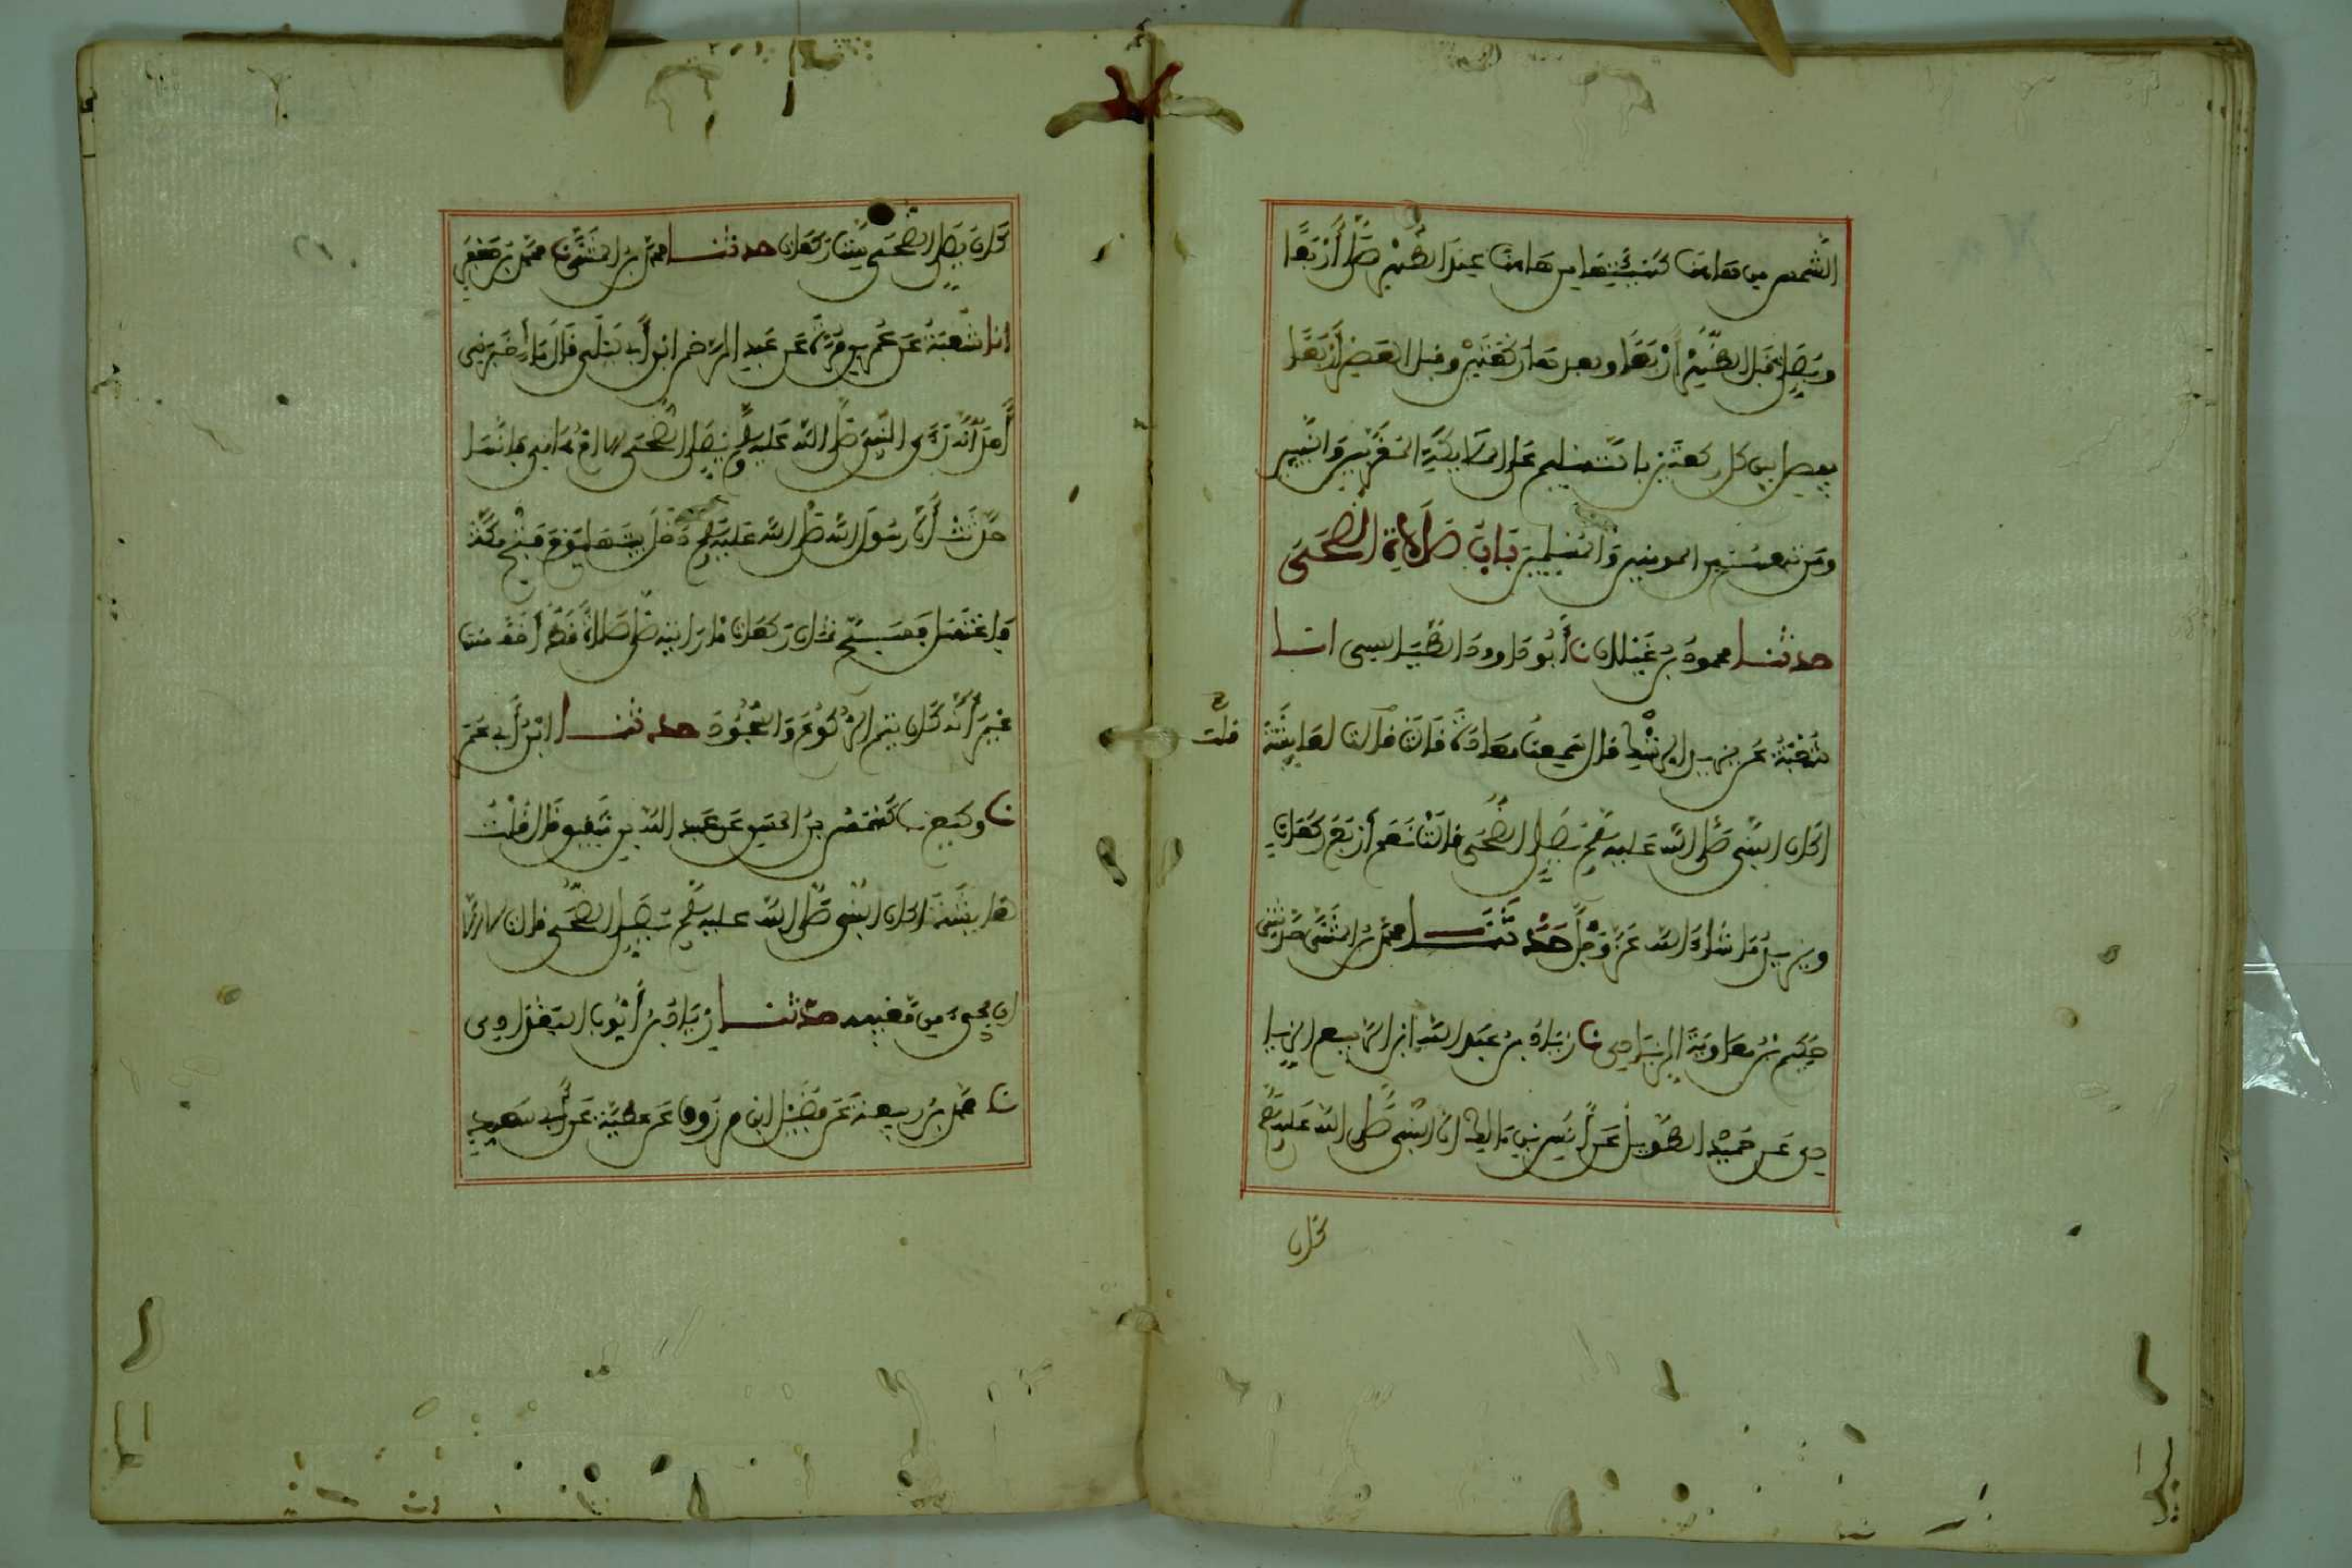 الشمس من هاهنا كهيئتها من هاهنا عند الظهر صلى أربعا
ويصلى قبل الظهر أربعا وبعدها ركعتين وقبل العصر أربعا
يفصل بين كل ركعتين بالتسليم على الملايكة المقربين والنبيين
ومن تبعهم من المومنين والمسلمين باب صلاة الضحى
حدثنا محمود بن غيلان نا أبو داوود الطيالسى انا
شعبة عن يزيد الرشك قال سمعت معاذة قالت قلت لعايشة
قلت
اكان النبى صلى الله عليه وسلم يصلى الضحى قالت نعم أربع ركعات
ويزيد ما شاء الله عز وجل حدثنا محمد بن المثنى حدثنى
حكيم بن معاوية الزيادى نا زياد بن عبد الله ابن الربيع الزيا
دى عن حميد الطويل عن أنس بن مالك ان النبى صلى الله عليه وسلم
كان
كان يصلى الضحى ست ركعات حدثنا محمد بن المثنى نا محمد بن جعفر
انا شعبة عن عمرو بن مرة عن عبد الرحمن ابن أبى ليلى قال ما أخبرنى
أحد أنه رأى النبى صلى الله عليه وسلم يصلى الضحى الا ام هانى فانها
حدثت أن رسول الله صلى الله عليه وسلم دخل بيتها يوم فتح مكة
فاغتسل فسبح ثمان ركعات ما رايته صلى صلاة قط أخف منها
غير أنه كان يتم الركوع والسجود حدثنا ابن أبى عمر
نا وكيع نا كهمس بن الحسن عن عبد الله بن شقيق قال قلت
لعايشة اكان النبى صلى الله عليه وسلم يصلى الضحى قالت لا الا
ان يجىء من مغيبه حدثنا زياد بن أيوب البغدادى
نا محمد بن ربيعة عن فضيل ابن مرزوق عن عطية عن أبى سعيد